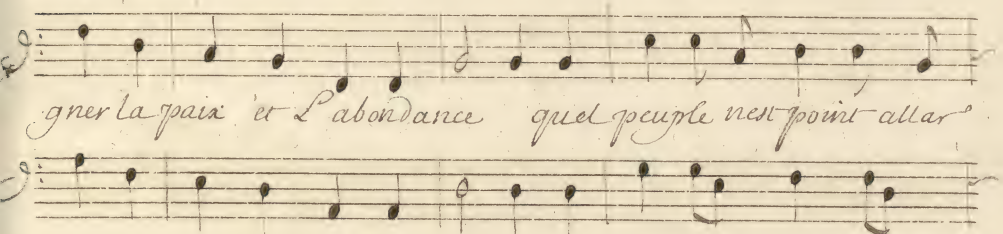 gner la paix et L'abondance quel peuple nest point allar